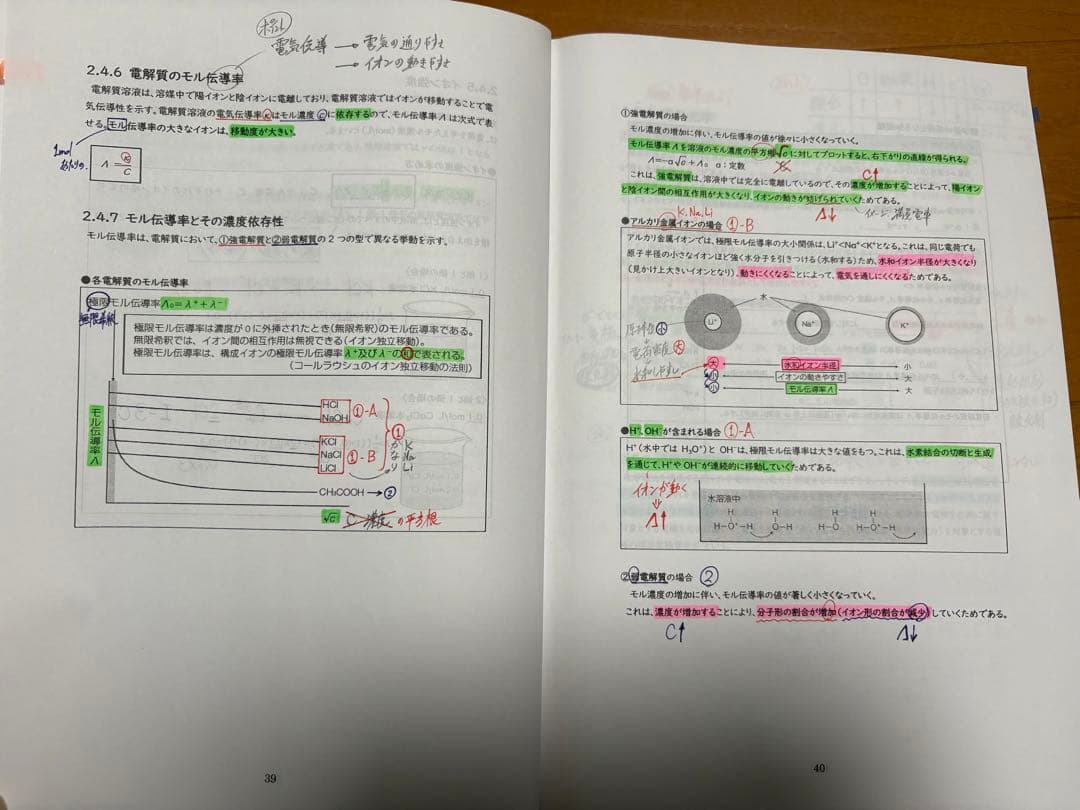 ポイント
電気伝導 → 電気の通りやすさ
→ イオンの動きやすさ
2.4.6 電解質のモル伝導率
電解質溶液は、溶媒中で陽イオンと陰イオンに電離しており、電解質溶液ではイオンが移動することで電
気伝導性を示す。電解質溶液の電気伝導率κはモル濃度Cに依存するので、モル伝導率Λは次式で表
せる。モル伝導率の大きなイオンは、移動度が大きい。
1molあたり。
Λ = κ/C
2.4.7 モル伝導率とその濃度依存性
モル伝導率は、電解質において、①強電解質と②弱電解質の2つの型で異なる挙動を示す。
●各電解質のモル伝導率
極限モル伝導率 Λ₀=λ⁺+λ⁻
無限希釈
極限モル伝導率は濃度が0に外挿されたとき(無限希釈)のモル伝導率である。
無限希釈では、イオン間の相互作用は無視できる(イオン独立移動)。
極限モル伝導率は、構成イオンの極限モル伝導率λ⁺及びλ⁻の和で表される。
(コールラウシュのイオン独立移動の法則)
モル伝導率Λ
HCl
NaOH
①-A
KCl
NaCl
LiCl
①-B
①
か K
な Na
り Li
CH₃COOH → ②
√C C 濃度 の平方根
39
①強電解質の場合
モル濃度の増加に伴い、モル伝導率の値が徐々に小さくなっていく。
モル伝導率Λを溶液のモル濃度の平方根√cに対してプロットすると、右下がりの直線が得られる。
Λ=-a√c+Λ₀ a:定数
C↑
これは、強電解質は、溶液中では完全に電離しているので、その濃度が増加することによって、陽イオン
と陰イオン間の相互作用が大きくなり、イオンの動きが妨げられていくためである。
Λ↓ イメージ 満員電車
K, Na, Li
●アルカリ金属イオンの場合 ①-B
アルカリ金属イオンでは、極限モル伝導率の大小関係は、Li⁺<Na⁺<K⁺となる。これは、同じ電荷でも
原子半径の小さなイオンほど強く水分子を引きつける(水和する)ため、水和イオン半径が大きくなり
(見かけ上大きいイオンとなり)、動きにくくなることによって、電気を通しにくくなるためである。
水
Li⁺
Na⁺
K⁺
小
電荷密度 大
水和しやすい
大 水和イオン半径 小
小 イオンの動きやすさ 大
小 モル伝導率Λ 大
●H⁺、OH⁻が含まれる場合 ①-A
H⁺(水中ではH₃O⁺)とOH⁻は、極限モル伝導率は大きな値をもつ。これは、水素結合の切断と生成
を通じて、H⁺やOH⁻が連続的に移動していくためである。
イオンが動く
⇓
Λ↑
水溶液中
H H H H
H−O⁺−H O−H H−O H−O⁺−H
②弱電解質の場合 ②
モル濃度の増加に伴い、モル伝導率の値が著しく小さくなっていく。
これは、濃度が増加することにより、分子形の割合が増加(イオン形の割合が減少)していくためである。
C↑ Λ↓
40